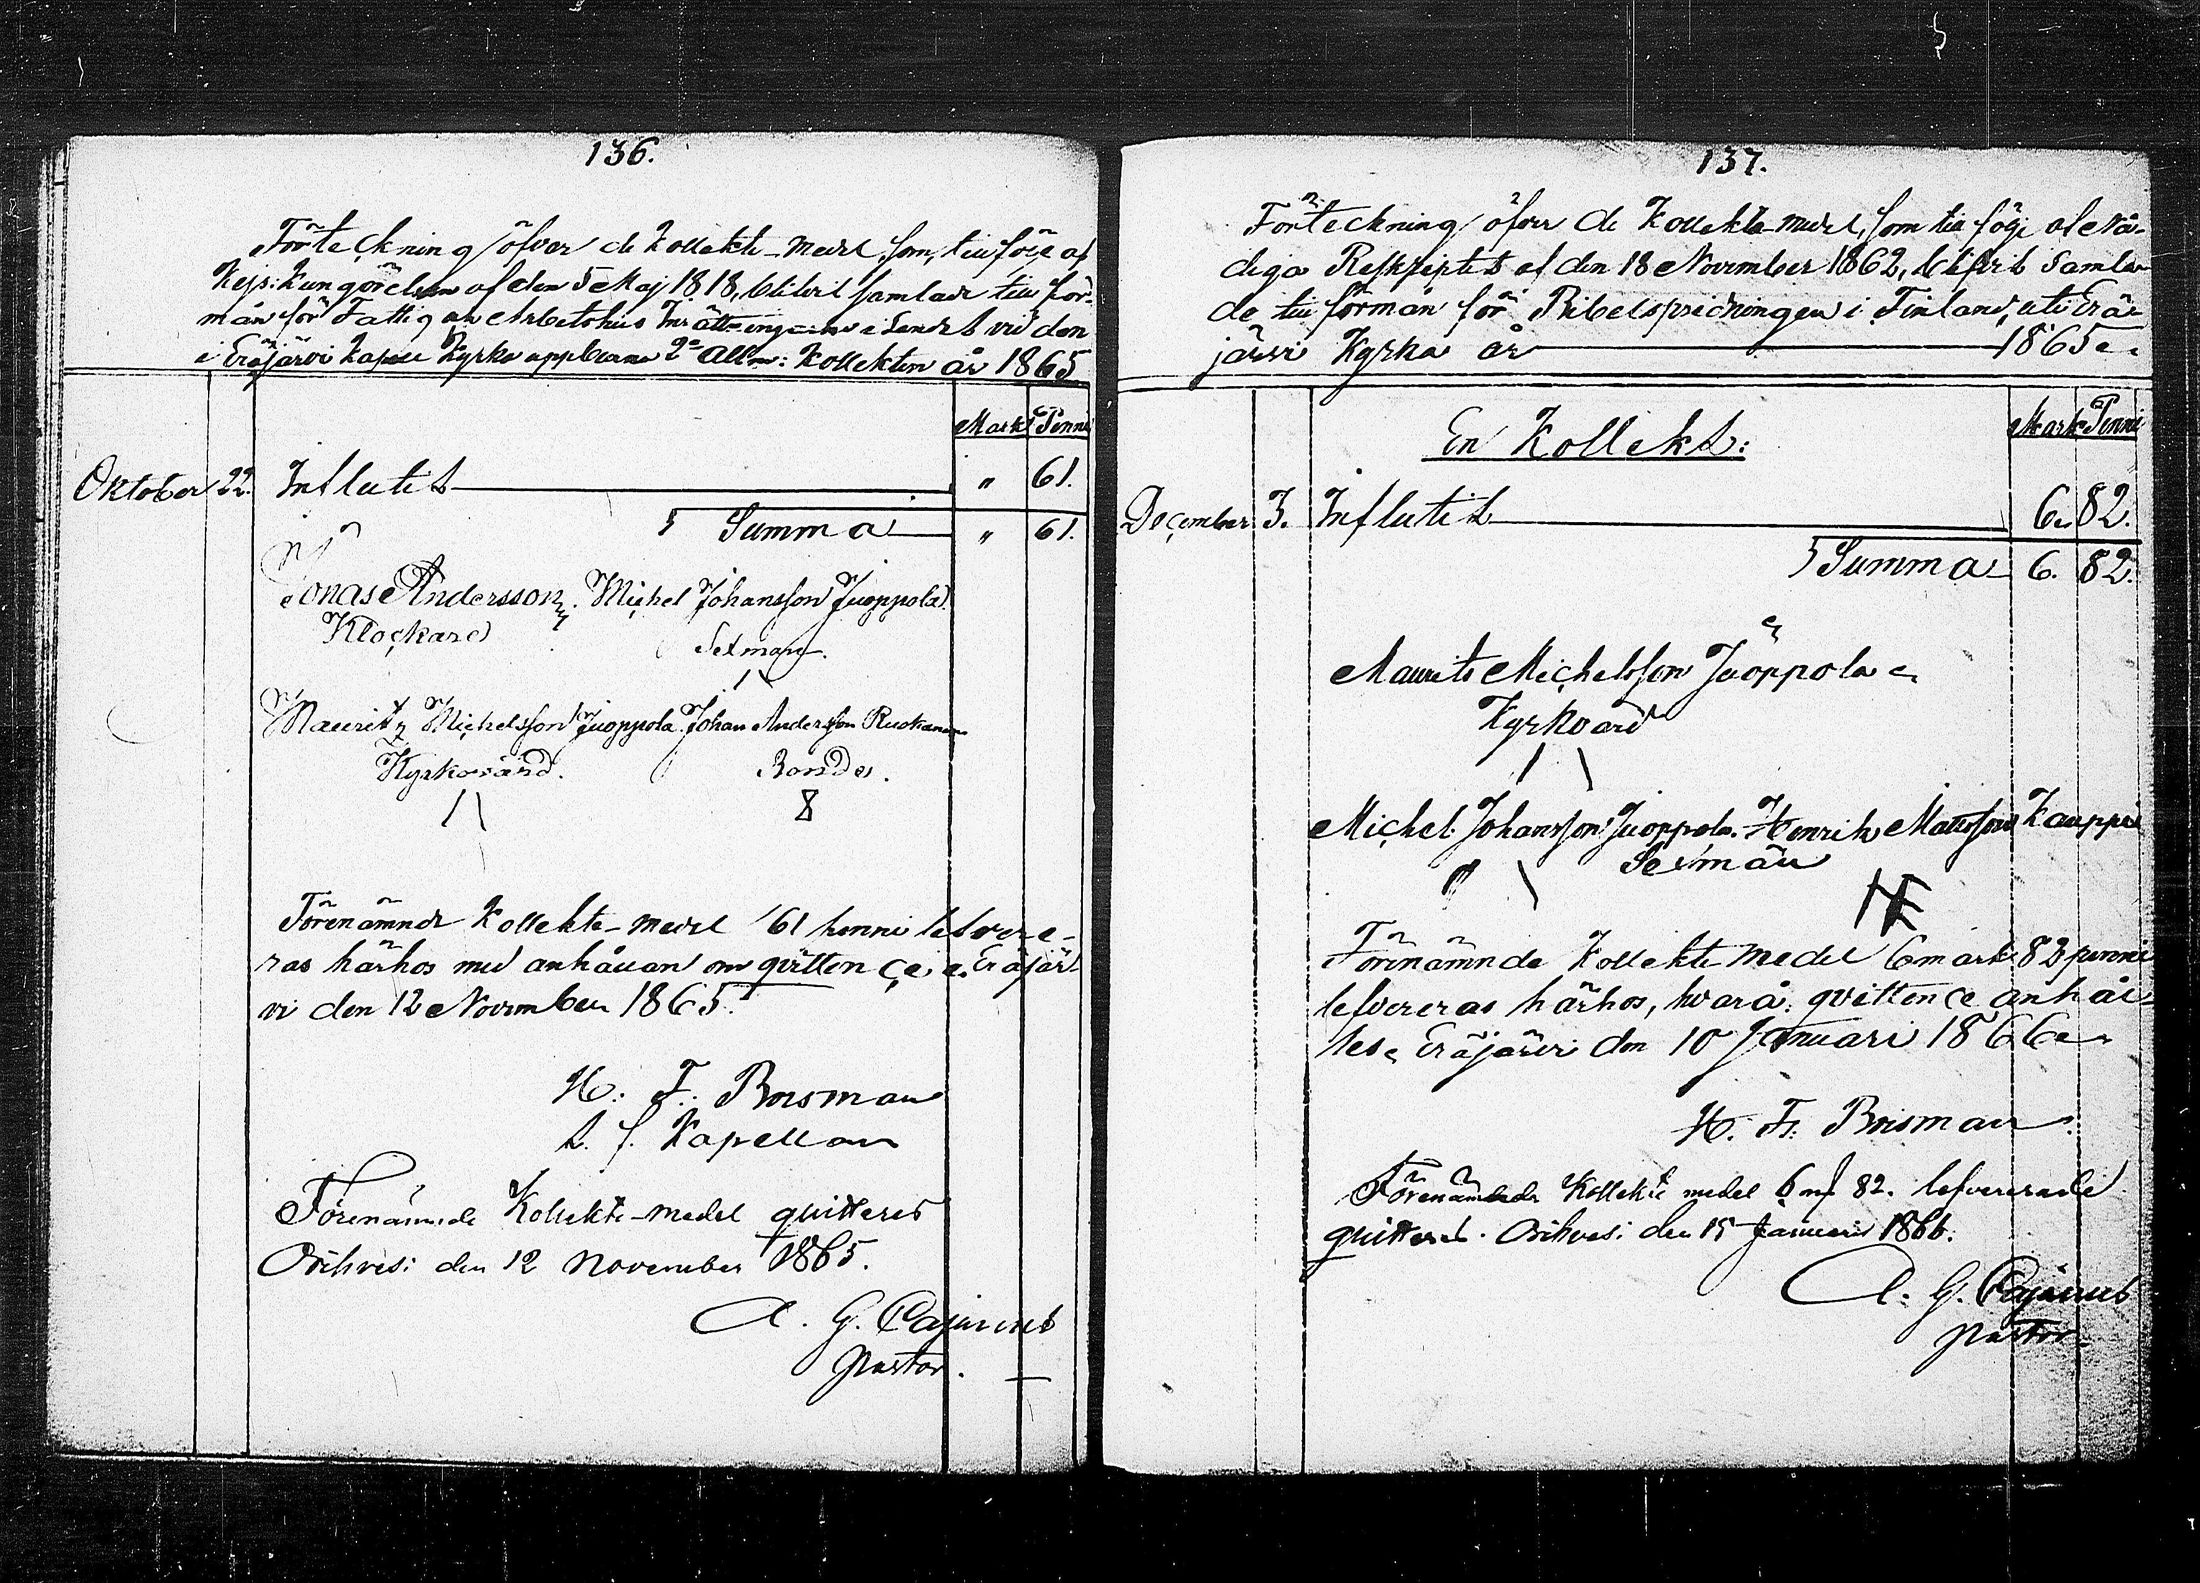 136.
Förteckning öfver de Kollekte-medel, som, till följe af
Kejs: Kungörelsen af den 5 Maj 1818, blifvit samlade till för-
mån för Fattig och Arbetshus Inrättningarne i Landet vid den
i Eräjärvi Kapell Kyrka uppburna 2a Allm: Kollekten år 1865
Mark Penni
Oktober 22. Influtit " 61.
Summa " 61.
Jonas Andersson. Michel Johansson Juoppola.
Klockare Sexman.
Mauritz Michelsson Juoppola. Johan Andersson Ruokanen
Kyrkovärd. Bonde.
Förenämnde Kollekte-medel 61 penni lefvere-
ras härhos med anhållan om qvittence. Eräjär-
vi den 12 November 1865.
H. F. Boisman
t. f. Kapellan
Förenämnde Kollekte-medel quitteras
Orihvesi den 12 November 1865.
A. G. Cajanus
Pastor.
137.
Förteckning öfver de Kollekte-medel, som till följe af Nå-
diga Reskriptet af den 18 November 1862, blifvit samla-
de till förmån för Bibelspridningen i Finland, uti Erä-
järvi Kyrka år 1865.
Mark Penni
En Kollekt:
December 3. Influtit 6. 82.
Summa 6. 82.
Maurits Michelsson Juoppola
Kyrkoärd
Michel Johansson Juoppola. Henrik Matsson Kauppi
Sexmän
Förenämnde Kollekte medel 6 mark 82 penni
lefvereras härhos, hvarå qvittence anhål-
les. Eräjärvi den 10 Januari 1866.
H. F. Boisman.
Förenämnde Kollekte medel 6 mk 82. lefvererade
quitteras. Orihvesi den 15 Januari 1866.
A. G. Cajanus
Pastor.